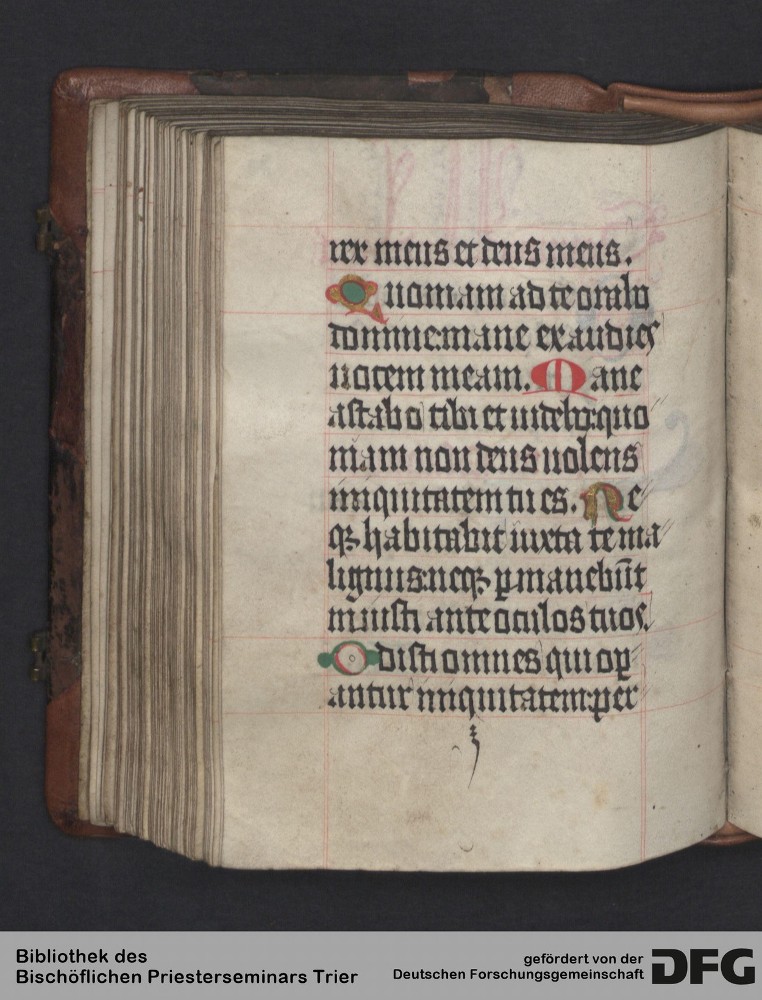 rex meus et deus meus.
Quoniam ad te orabo
domine: mane exaudies
uocem meam. Mane
astabo tibi et uidebo: quo
niam non deus uolens
iniquitatem tu es. Ne
qꝫ habitabit iuxta te ma
lignus: neqꝫ ꝑmanebūt
iniusti ante oculos tuos.
Odisti omnes qui oꝑ
antur iniquitatem: ꝑer
Bibliothek des
Bischöflichen Priesterseminars Trier
gefördert von der
Deutschen Forschungsgemeinschaft
DFG